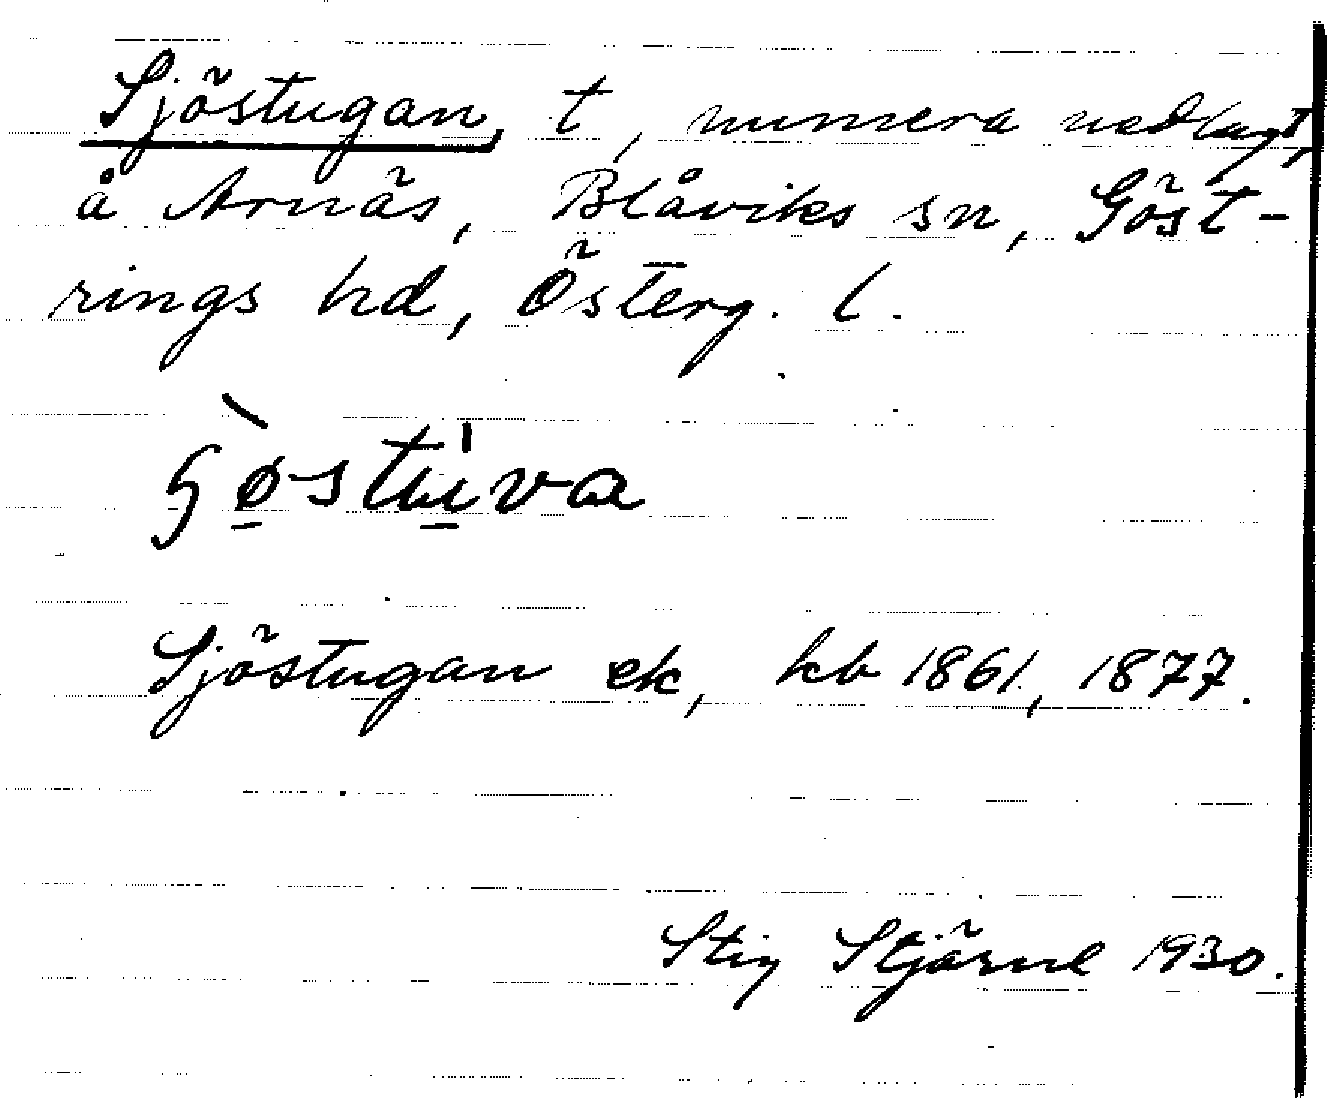 Sjöstugan, t, numera nedlagt,
å Arnäs, Blåviks sn, Göst-
rings hd, Österg. l.
Sjöstugan ek, kb 1861, 1877.
Stig Stjärne 1930.